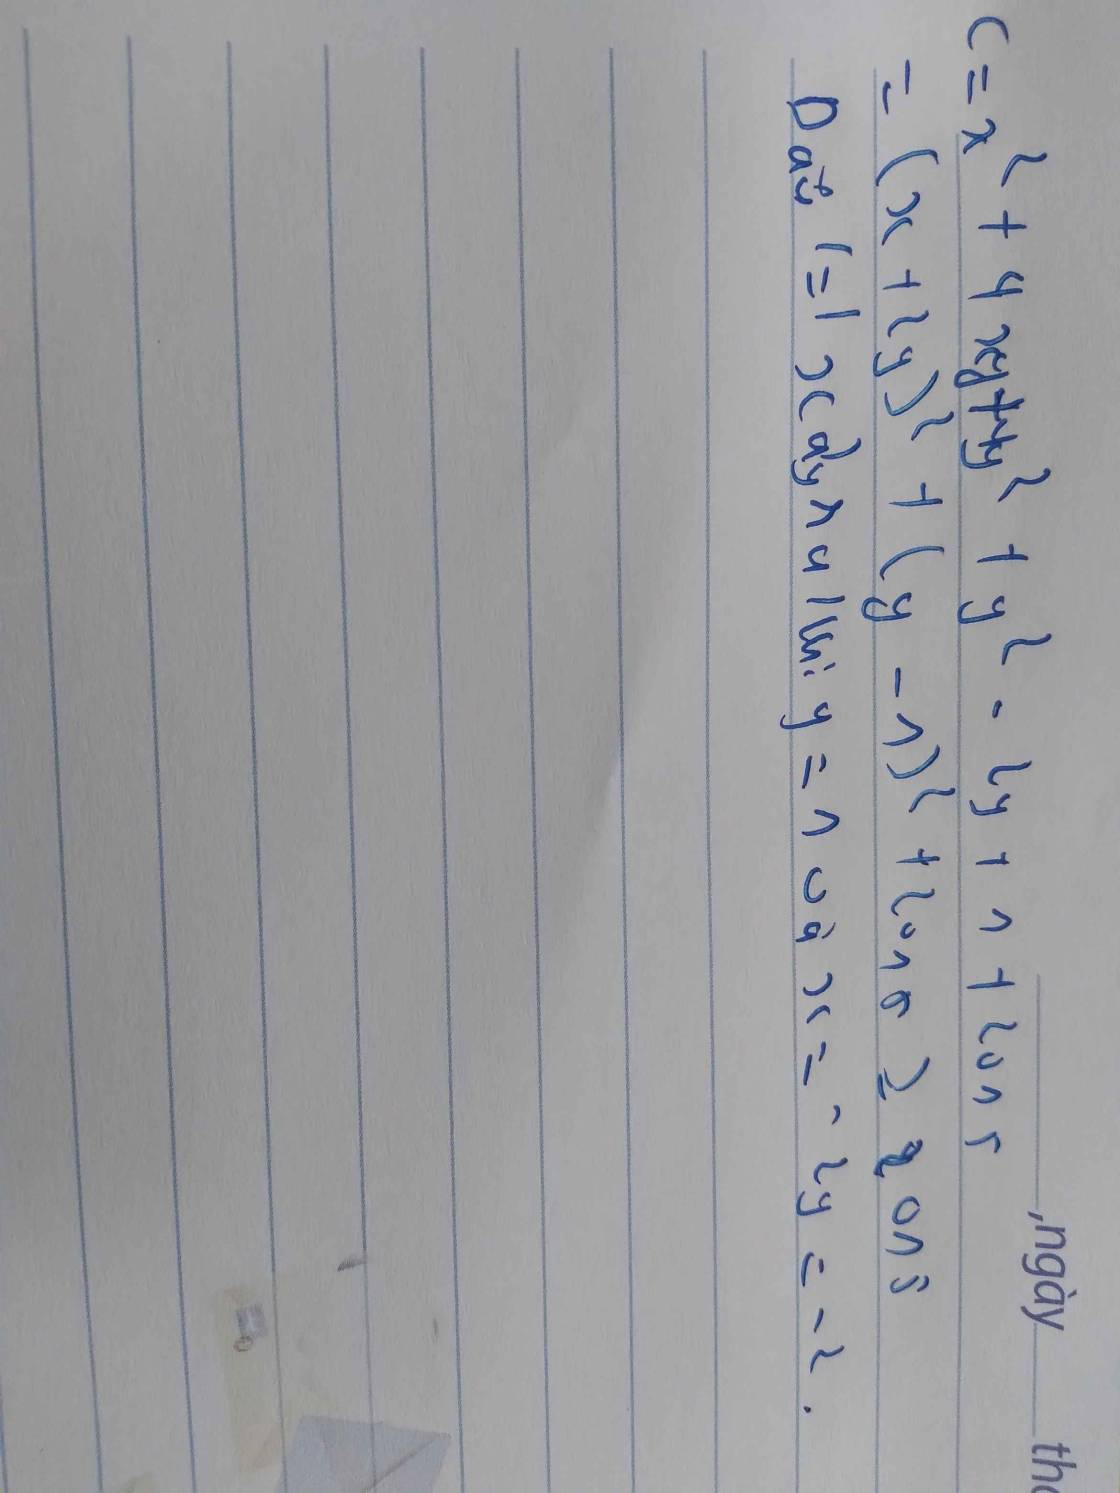 ,ngày thá
C = x² + 4xy + 4y² + y² - 2y + 1 + 2015
= (x + 2y)² + (y - 1)² + 2015 ≥ 2015
Dấu "=" xảy ra khi y = 1 và x = -2y = -2.